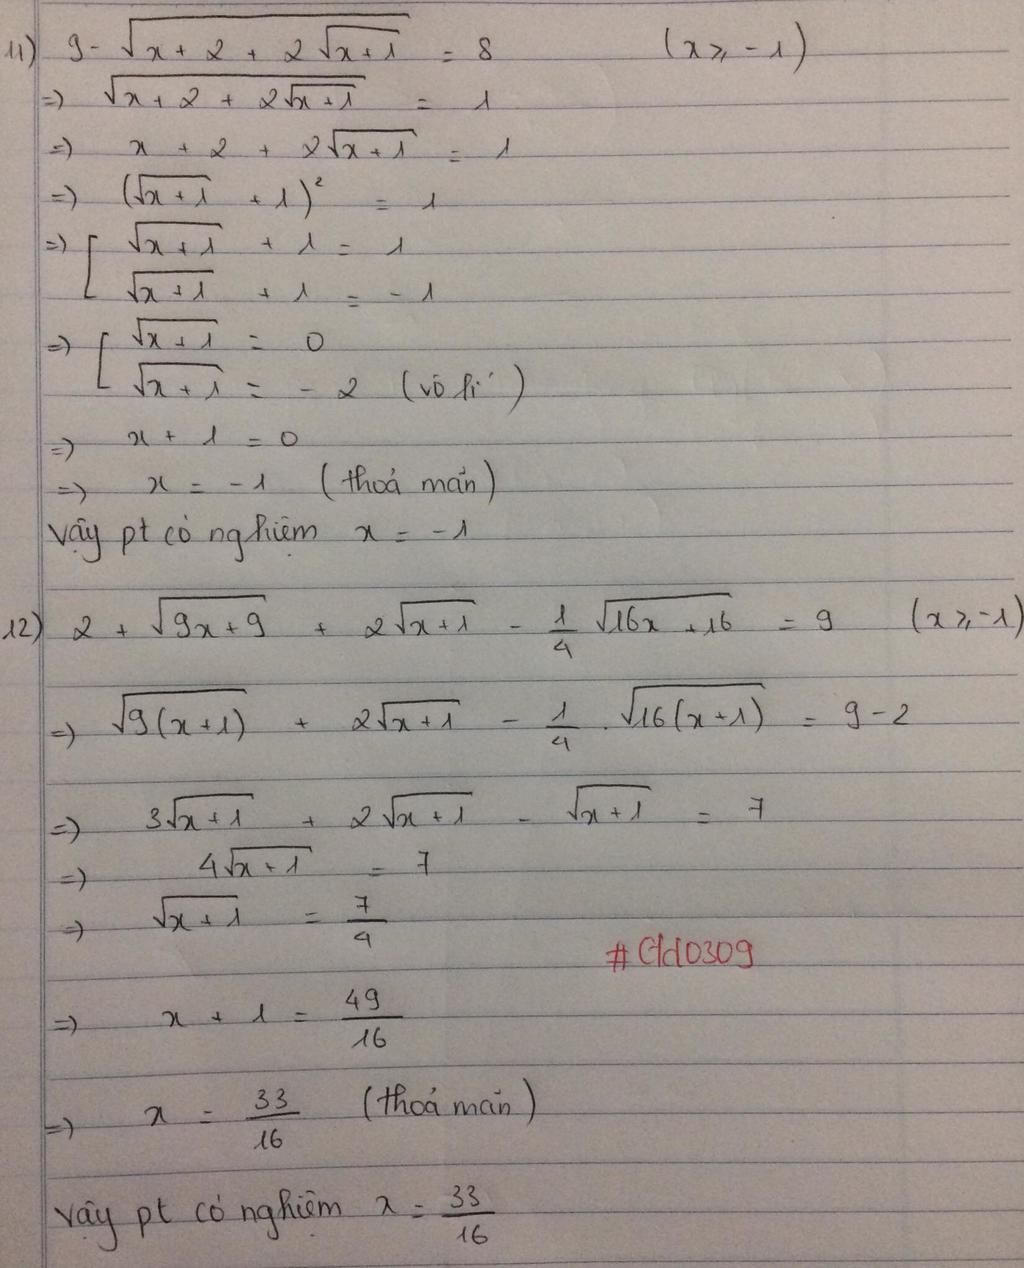 11) 9 - √(x + 2 + 2√(x+1)) = 8 (x ≥ -1)
=> √(x + 2 + 2√(x+1)) = 1
=> x + 2 + 2√(x+1) = 1
=> (√(x+1) + 1)² = 1
=> [ √(x+1) + 1 = 1
√(x+1) + 1 = -1
=> [ √(x+1) = 0
√(x+1) = -2 (vô lí)
=> x + 1 = 0
=> x = -1 (thoả mãn)
Vậy pt có nghiệm x = -1
12) 2 + √(9x+9) + 2√(x+1) - 1/4 √(16x+16) = 9 (x ≥ -1)
=> √(9(x+1)) + 2√(x+1) - 1/4 . √(16(x+1)) = 9 - 2
=> 3√(x+1) + 2√(x+1) - √(x+1) = 7
=> 4√(x+1) = 7
=> √(x+1) = 7/4
#Cld0309
=> x + 1 = 49/16
=> x = 33/16 (thoả mãn)
Vậy pt có nghiệm x = 33/16